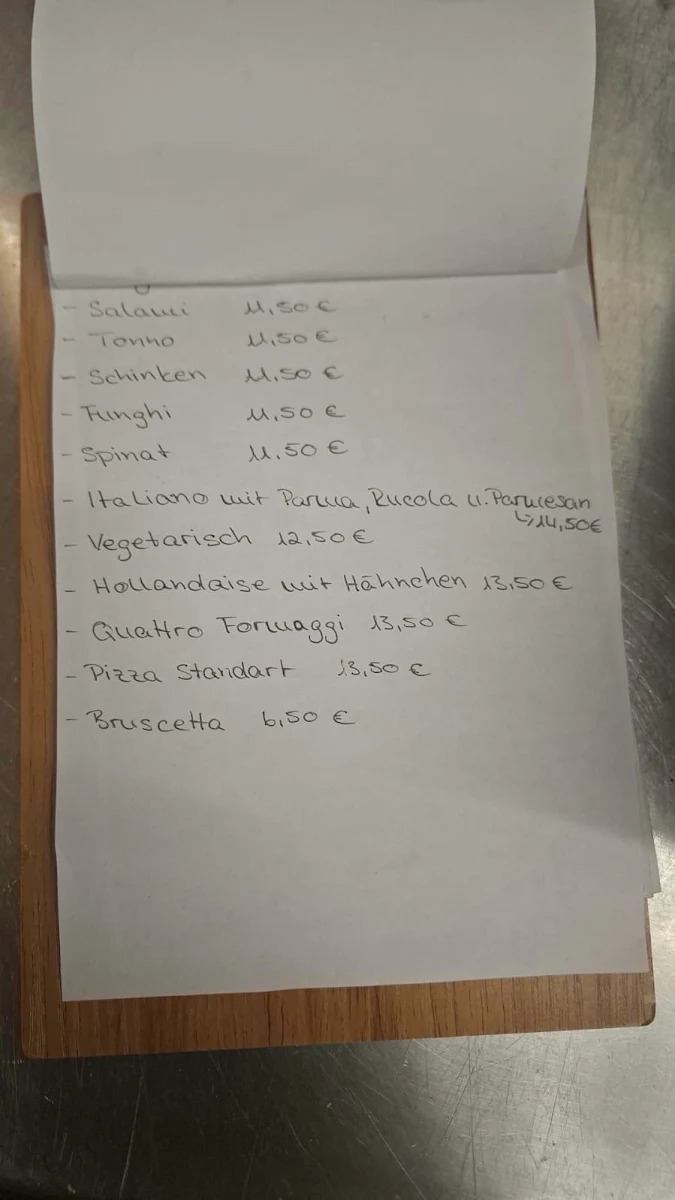 - Salami 11,50 €
- Tonno 11,50 €
- Schinken 11.50 €
- Funghi 11,50 €
- Spinat 11.50 €
- Italiano mit Parma, Rucola u. Parmesan
↳ 14,50€
- Vegetarisch 12,50 €
- Hollandaise mit Hähnchen 13,50 €
- Quattro Formaggi 13,50 €
- Pizza Standart 13,50 €
- Bruscetta 6,50 €